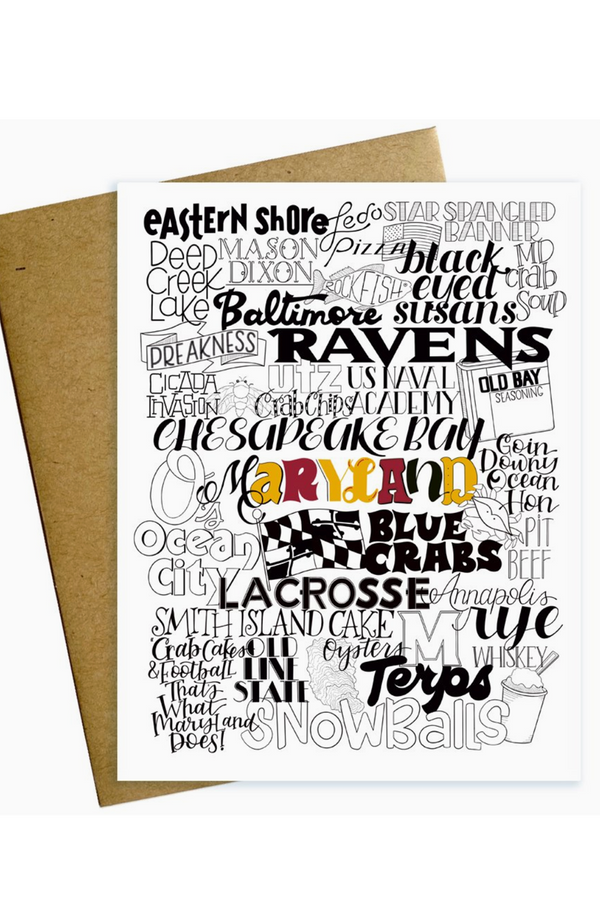 EASTERN SHORE
Ledo
Pizza
STAR SPANGLED
BANNER
Deep
Creek
Lake
MASON
DIXON
ROCKFISH
black
eyed
susans
MD
crab
Soup
Baltimore
RAVENS
PREAKNESS
CICADA
INVASION
utz
Crab Chips
US NAVAL
ACADEMY
OLD BAY
SEASONING
CHESAPEAKE BAY
Goin
Downy
Ocean
Hon
O's
MARYLAND
Ocean
City
BLUE
CRABS
PIT
BEEF
LACROSSE
Annapolis
SMITH ISLAND CAKE
M
rye
WHISKEY
Crab Cakes
& Football
That's
What
Maryland
Does!
OLD
LINE
STATE
Oysters
Terps
SNOWBALLS